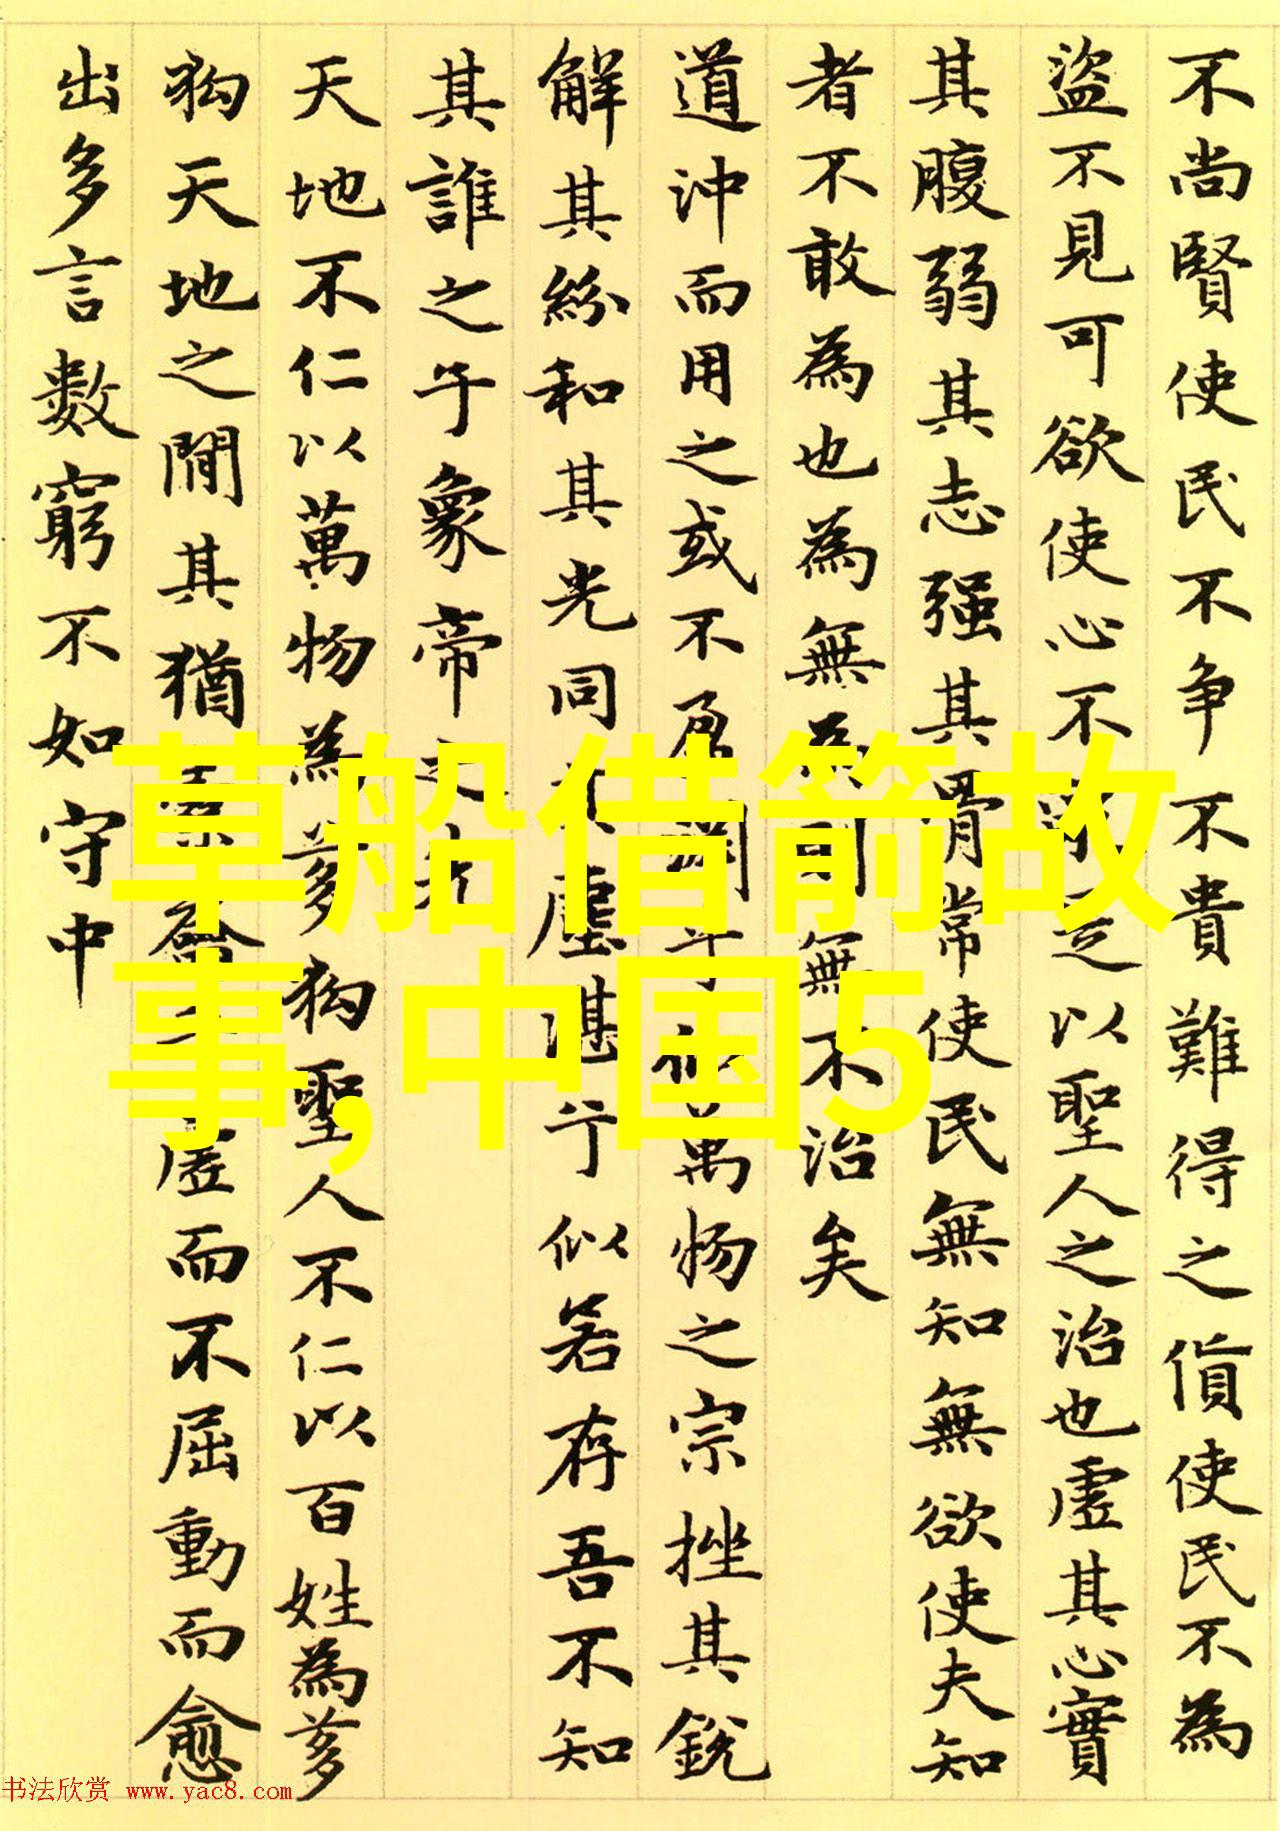 不尚賢使民不争不貴難得之貨使民不為
盜不見可欲使心不亂是以聖人之治也虛其心實
其腹弱其志强其骨常使民無知無欲使夫知
者不敢為也為無為則無不治矣
道沖而用之或不盈淵乎似萬物之宗挫其銳
解其紛和其光同其塵湛兮似若存吾不知
其誰之子象帝之先
天地不仁以萬物為芻狗聖人不仁以百姓為芻
狗天地之間其猶橐龠乎虛而不屈動而愈
出多言數窮不如守中
草船借箭故
事,中国5
书法欣赏 www.yac8.com